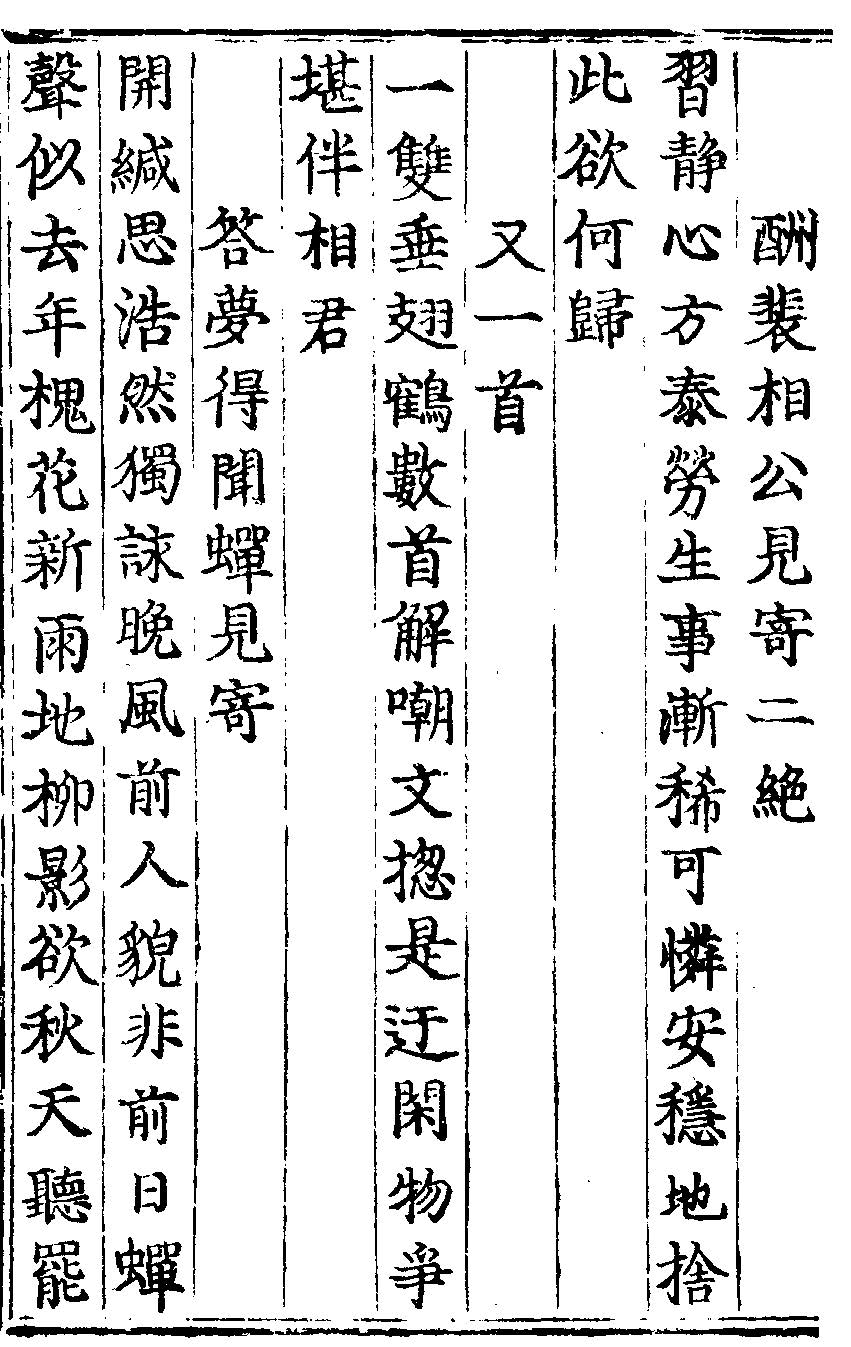 酬裴相公見寄二絶
習静心方泰勞生事漸稀可憐安穩地捨
此欲何歸
又一首
一雙垂翅鶴數首解嘲文揔是迂閑物爭
堪伴相君
答夢得聞蟬見寄
開緘思浩然獨詠晚風前人貌非前日蟬
聲似去年槐花新雨地柳影欲秋天聽罷